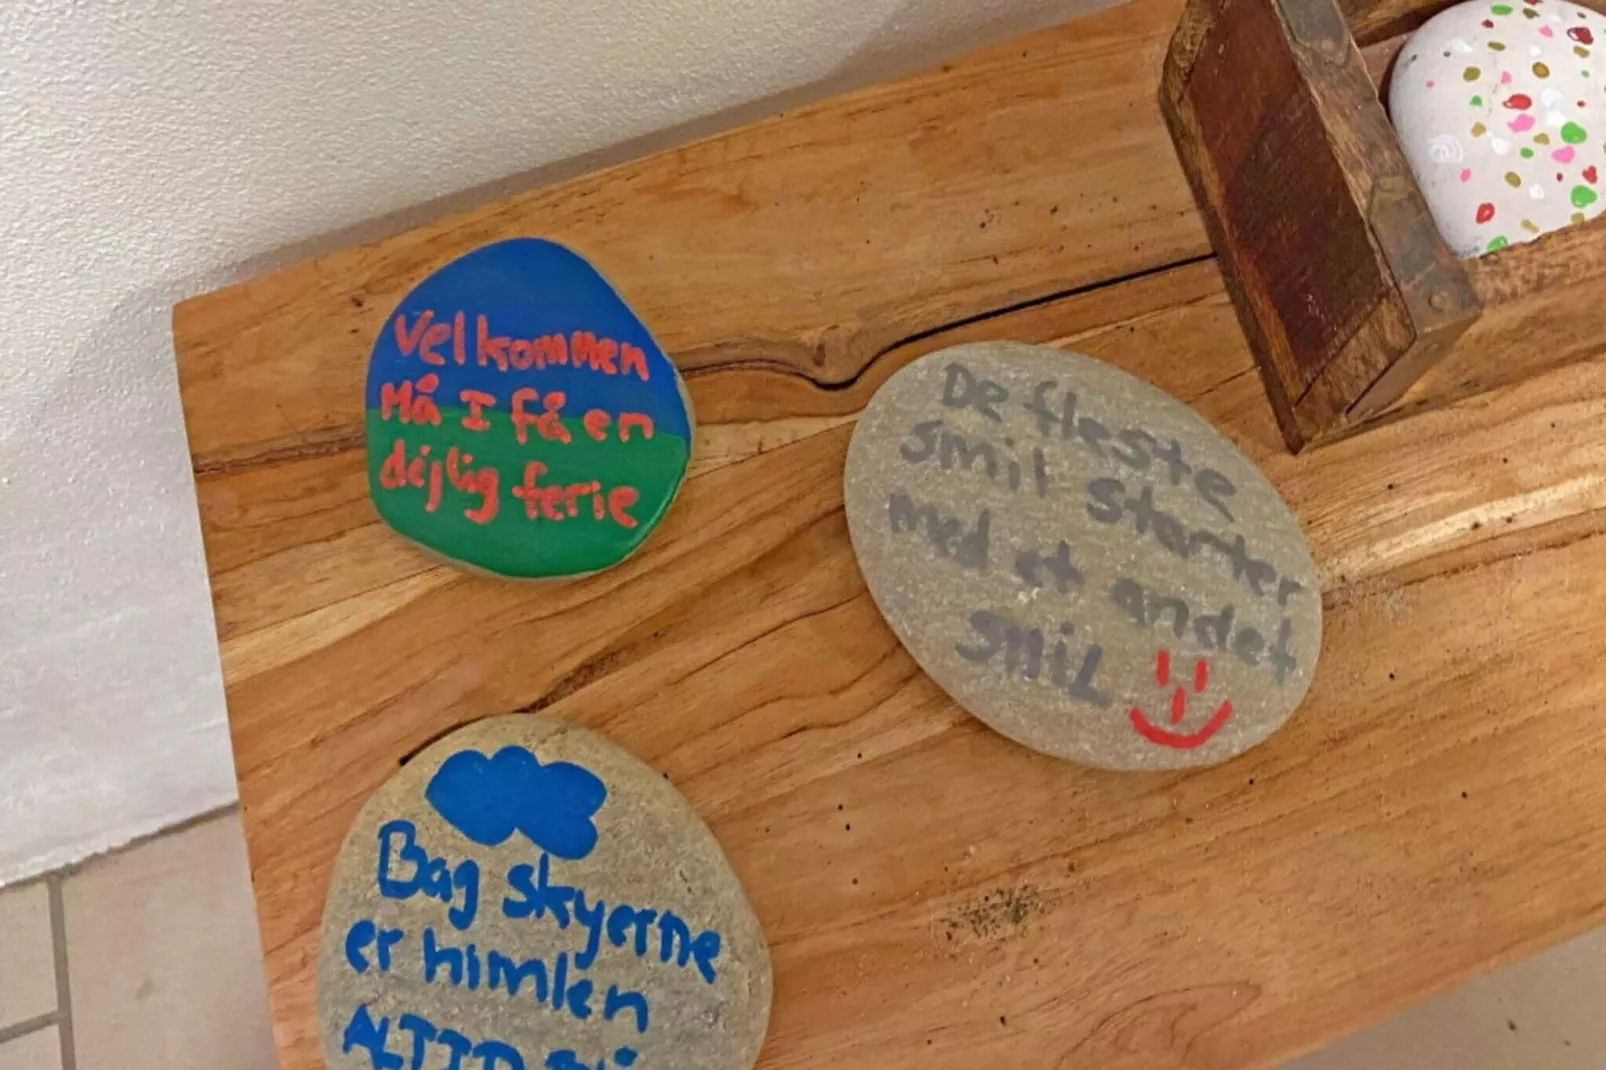 Velkommen
Må I få en
dejlig ferie
De fleste
smil starter
med et andet
smil
Bag skyerne
er himlen
ALTID